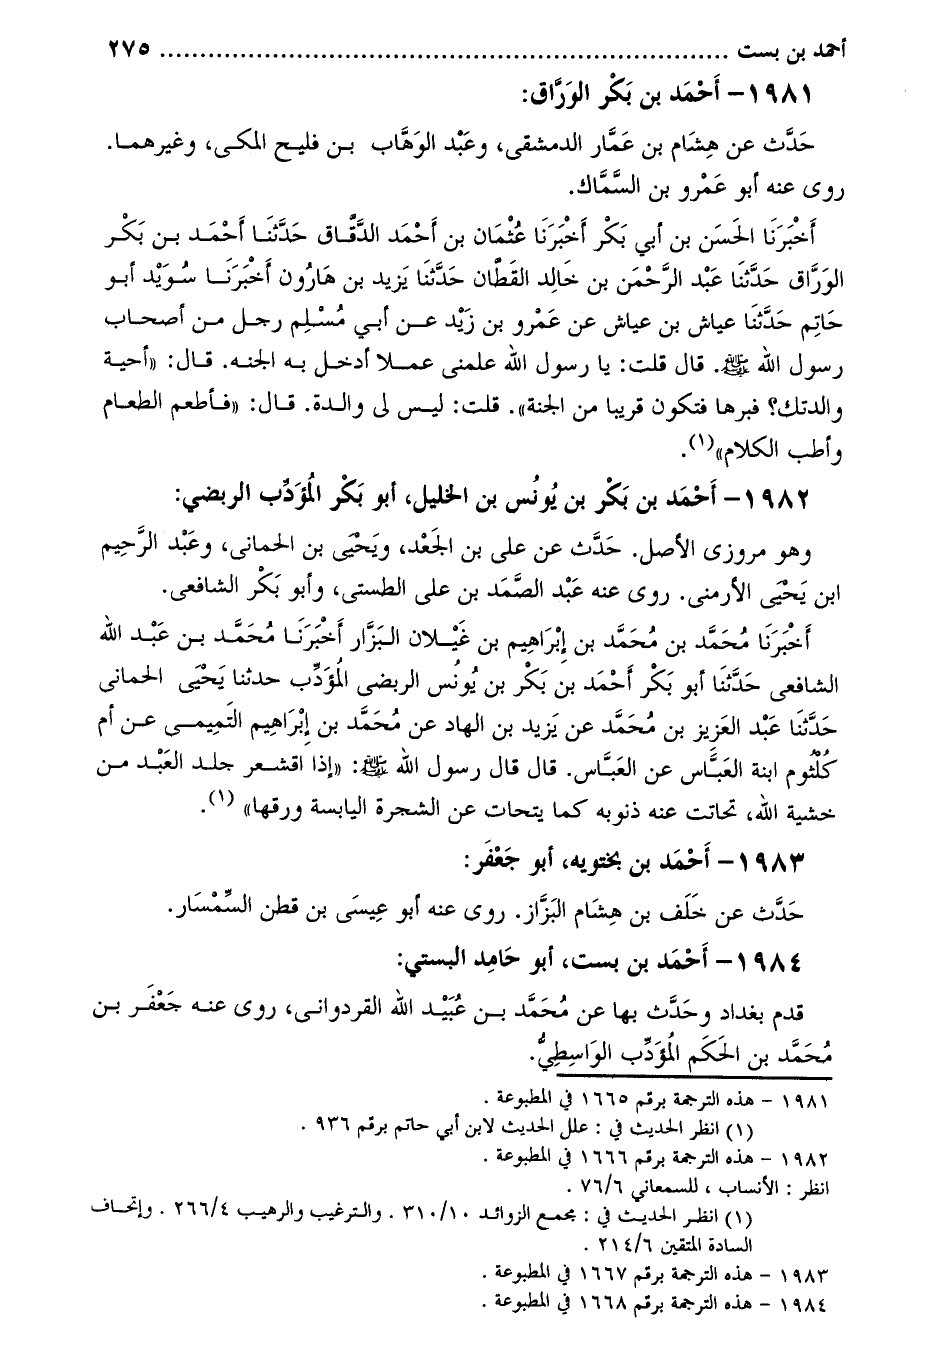 أحمد بن بست ........................................................................ ٢٧٥
١٩٨١ – أَحْمَد بن بَكْر الوَرَّاق:
حَدَّث عن هِشَام بن عَمَّار الدمشقى، وعَبْد الوَهَّاب بـن فليـح المكـى، وغيرهمـا.
روى عنه أبو عَمْرو بن السَّمَّاك.
أَخْبَرَنَا الحَسَن بن أبي بَكْر أَخْبَرَنَا عُثْمَان بن أَحْمَد الدَّقَّاق حَدَّثَنَـا أَحْمَـد بـن بَكْـر
الوَرَّاق حَدَّثَنَا عَبْد الرَّحْمَن بن خَالِد القَطَّان حَدَّثَنَا يَزِيد بن هَارُون أَخْبَرَنَـا سُـوَيْد أبـو
حَاتِم حَدَّثَنَا عياش بن عياش عن عَمْرو بن زَيْد عـن أبـي مُسْـلِم رجـل مـن أصحـاب
رسول الله ﷺ. قال قلت: يا رسول الله علمنى عمـلا أدخـل بـه الجنـه. قـال: «أحيـة
والدتك؟ فبرها فتكون قريبا من الجنة». قلت: ليـس لى والـدة. قـال: «فـأطعم الطعـام
وأطب الكلام»(١).
١٩٨٢ – أَحْمَد بن بَكْر بن يُونُس بن الخليل، أبو بَكْر المُؤَدِّب الربضي:
وهو مروزى الأصل. حَدَّث عن على بن الجَعْد، ويَحْيَى بن الحمانى، وعَبْد الرَّحِيم
ابن يَحْيَى الأرمنى. روى عنه عَبْد الصَّمَد بن على الطستى، وأبو بَكْر الشافعى.
أَخْبَرَنَا مُحَمَّد بن مُحَمَّد بن إِبْرَاهِيم بن غَيْـلان البَـزَّار أَخْبَرَنَـا مُحَمَّـد بـن عَبْـد الله
الشافعى حَدَّثَنَا أبو بَكْر أَحْمَد بن بَكْر بن يُونُس الربضى المُؤَدِّب حدثنا يَحْيَى الحمانى
حَدَّثَنَا عَبْد العَزِيز بن مُحَمَّد عن يَزِيد بن الهاد عن مُحَمَّد بن إِبْرَاهِيم التَمِيمـى عـن أم
كُلْثُوم ابنة العَبَّاس عن العَبَّاس. قال قال رسول الله ﷺ: «إذا اقشعر جلـد العَبْـد مـن
خشية الله، تحاتت عنه ذنوبه كما يتحات عن الشجرة اليابسة ورقها» (١).
١٩٨٣ – أَحْمَد بن بختويه، أبو جَعْفَر:
حَدَّث عن خَلَف بن هِشَام البَزَّاز. روى عنه أبو عِيسَى بن قطن السِّمْسَار.
١٩٨٤ – أَحْمَد بن بست، أبو حَامِد البستي:
قدم بغداد وحَدَّث بها عن مُحَمَّد بـن عُبَيْـد الله القردوانـى، روى عنـه جَعْفَـر بـن
مُحَمَّد بن الحَكَم المُؤَدِّب الوَاسِطِيُّ.
١٩٨١ – هذه الترجمة برقم ١٦٦٥ في المطبوعة .
(١) انظر الحديث في : علل الحديث لابن أبي حاتم برقم ٩٣٦ .
١٩٨٢ – هذه الترجمة برقم ١٦٦٦ في المطبوعة .
انظر : الأنساب ، للسمعاني ٧٦/٦ .
(١) انظـر الحديـث في : مجمع الزوائـد ٣١٠/١٠ . والـترغيب والرهيب ٢٦٦/٤ . وإتحـاف
السادة المتقين ٢١٤/٦ .
١٩٨٣ – هذه الترجمة برقم ١٦٦٧ في المطبوعة .
١٩٨٤ – هذه الترجمة برقم ١٦٦٨ في المطبوعة .